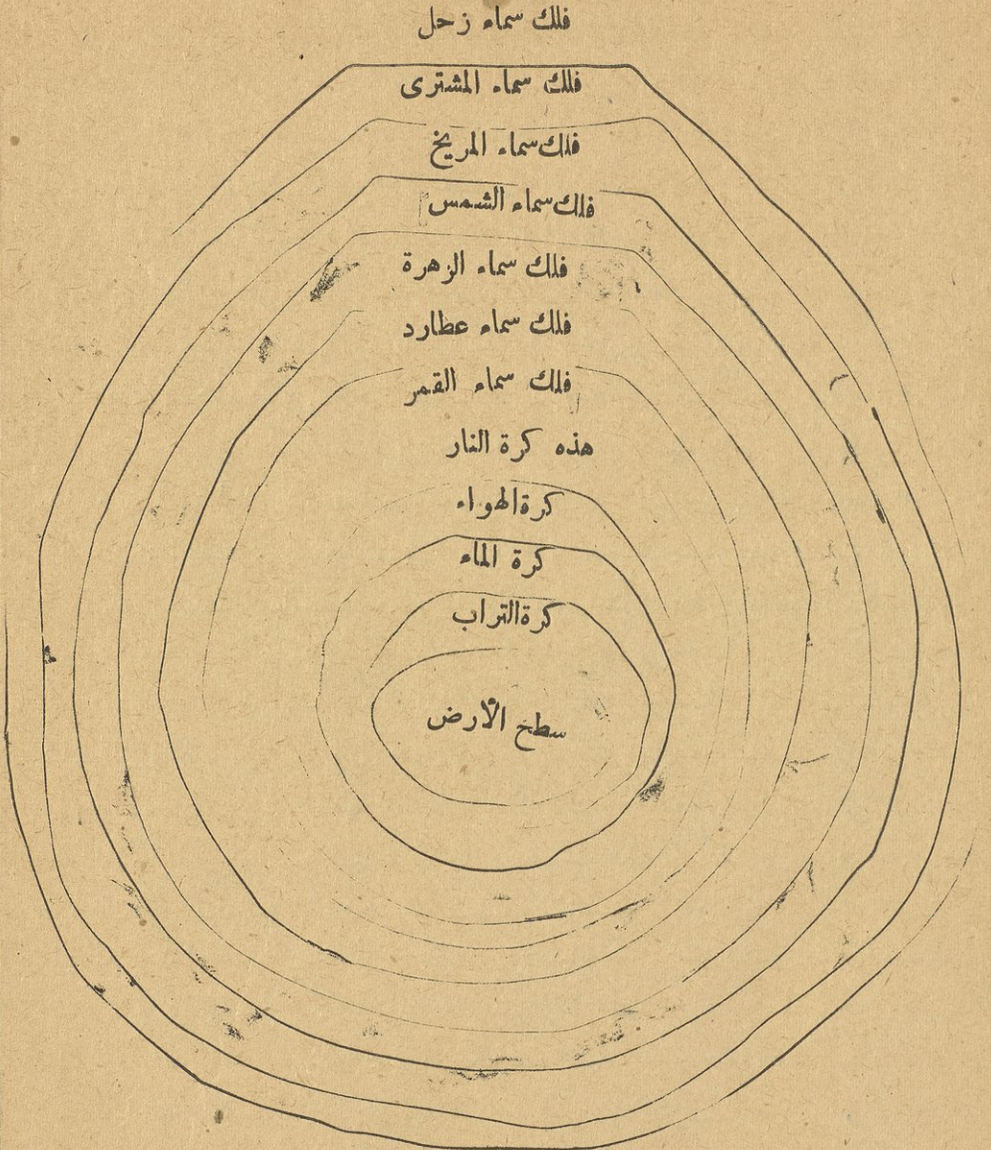 فلك سماء زحل
فلك سماء المشترى
فلك سماء المريخ
فلك سماء الشمس
فلك سماء الزهرة
فلك سماء عطارد
فلك سماء القمر
هذه كرة النار
كرة الهواء
كرة الماء
كرة التراب
سطح الأرض